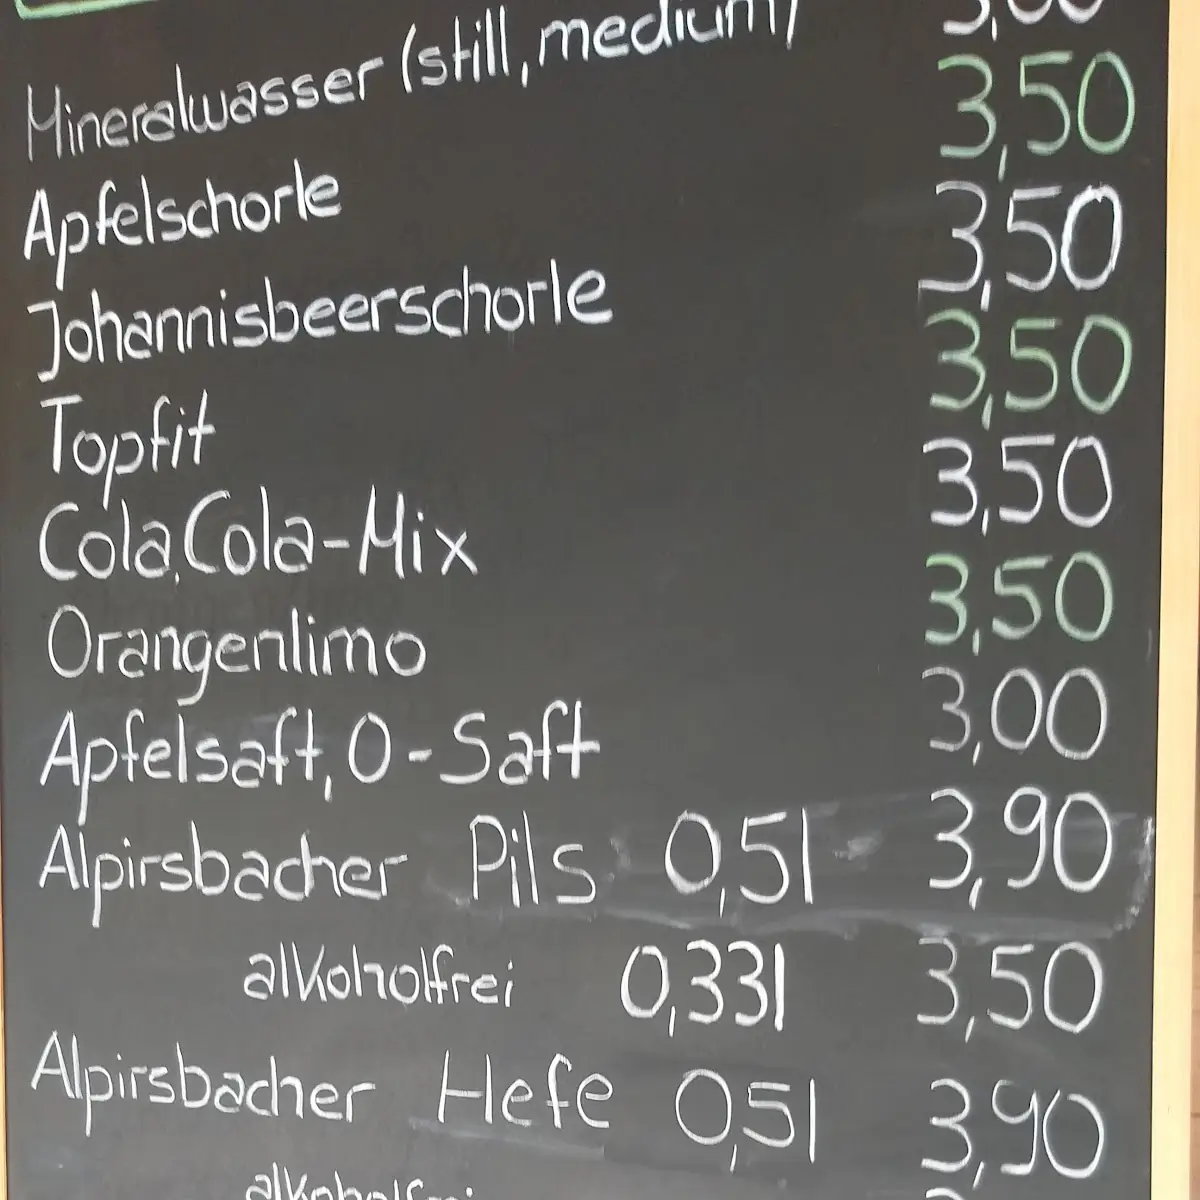 Mineralwasser (still, medium) 3,00
Apfelschorle 3,50
Johannisbeerschorle 3,50
Topfit 3,50
Cola, Cola-Mix 3,50
Orangenlimo 3,50
Apfelsaft, O-Saft 3,00
Alpirsbacher Pils 0,5l 3,90
alkoholfrei 0,33l 3,50
Alpirsbacher Hefe 0,5l 3,90
alkoholfrei